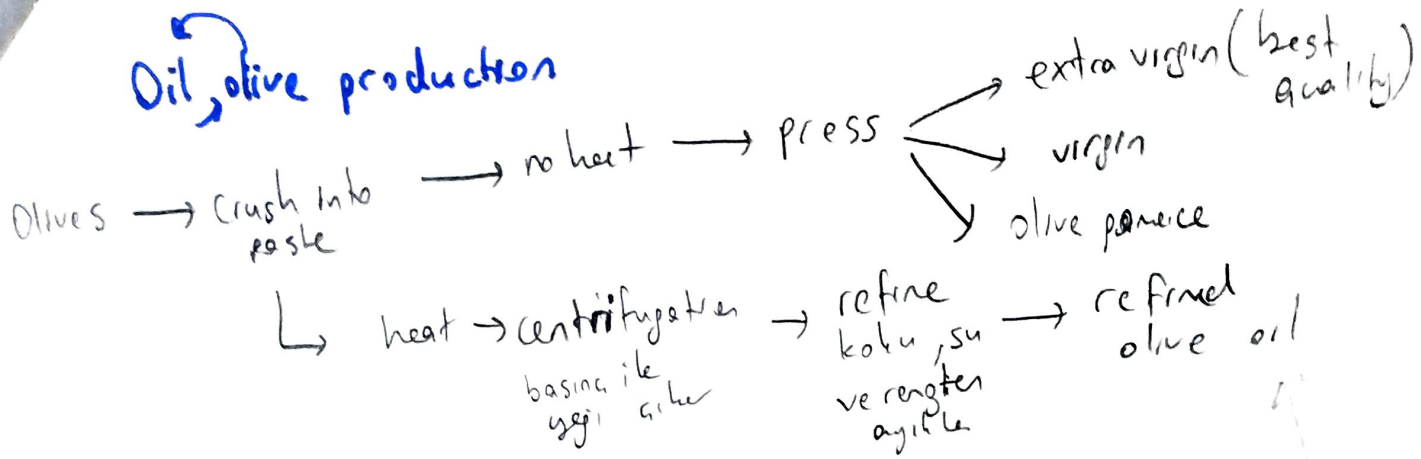 Oil, olive production
Olives → crush into paste
→ no heat → press
→ extra virgin (best quality)
→ virgin
→ olive pomeice
↳ heat → centrifugation
basınç ile
yağı çıkar
→ refine
koku, su
ve rengten
ayıkla
→ refined
olive oil